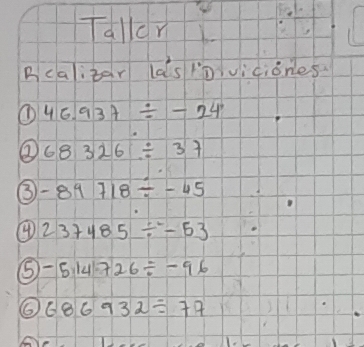 Taller
Realizar las Diviciónes
① 46.937 ÷ - 24
② 68 326 ÷ 37
③ -89 718 ÷ -45
④ 237485 ÷ -53
⑤ -514726 ÷ -96
⑥ 686932 ÷ 77